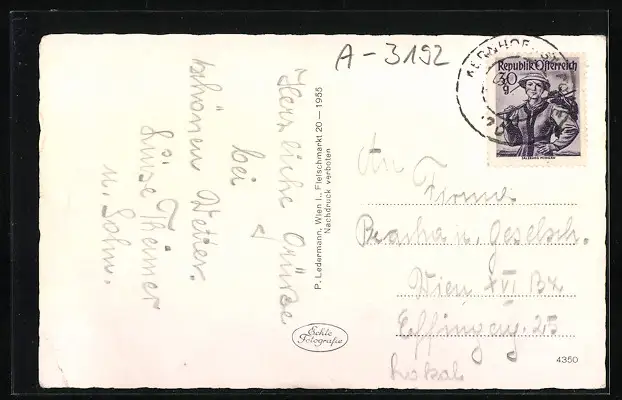 A-3192
KERNHOF
Republik Österreich
30
g
SALZBURG PONGAU
Herzliche Grüße
bei
schönen Wetter.
Luise Theimer
u. Sohn.
P. Ledermann, Wien I., Fleischmarkt 20 — 1955
Nachdruck verboten
Echte
Fotografie
An Firma
u. Gesellsch.
Wien XVI Bz
Effingerg. 25
Lokal
4350